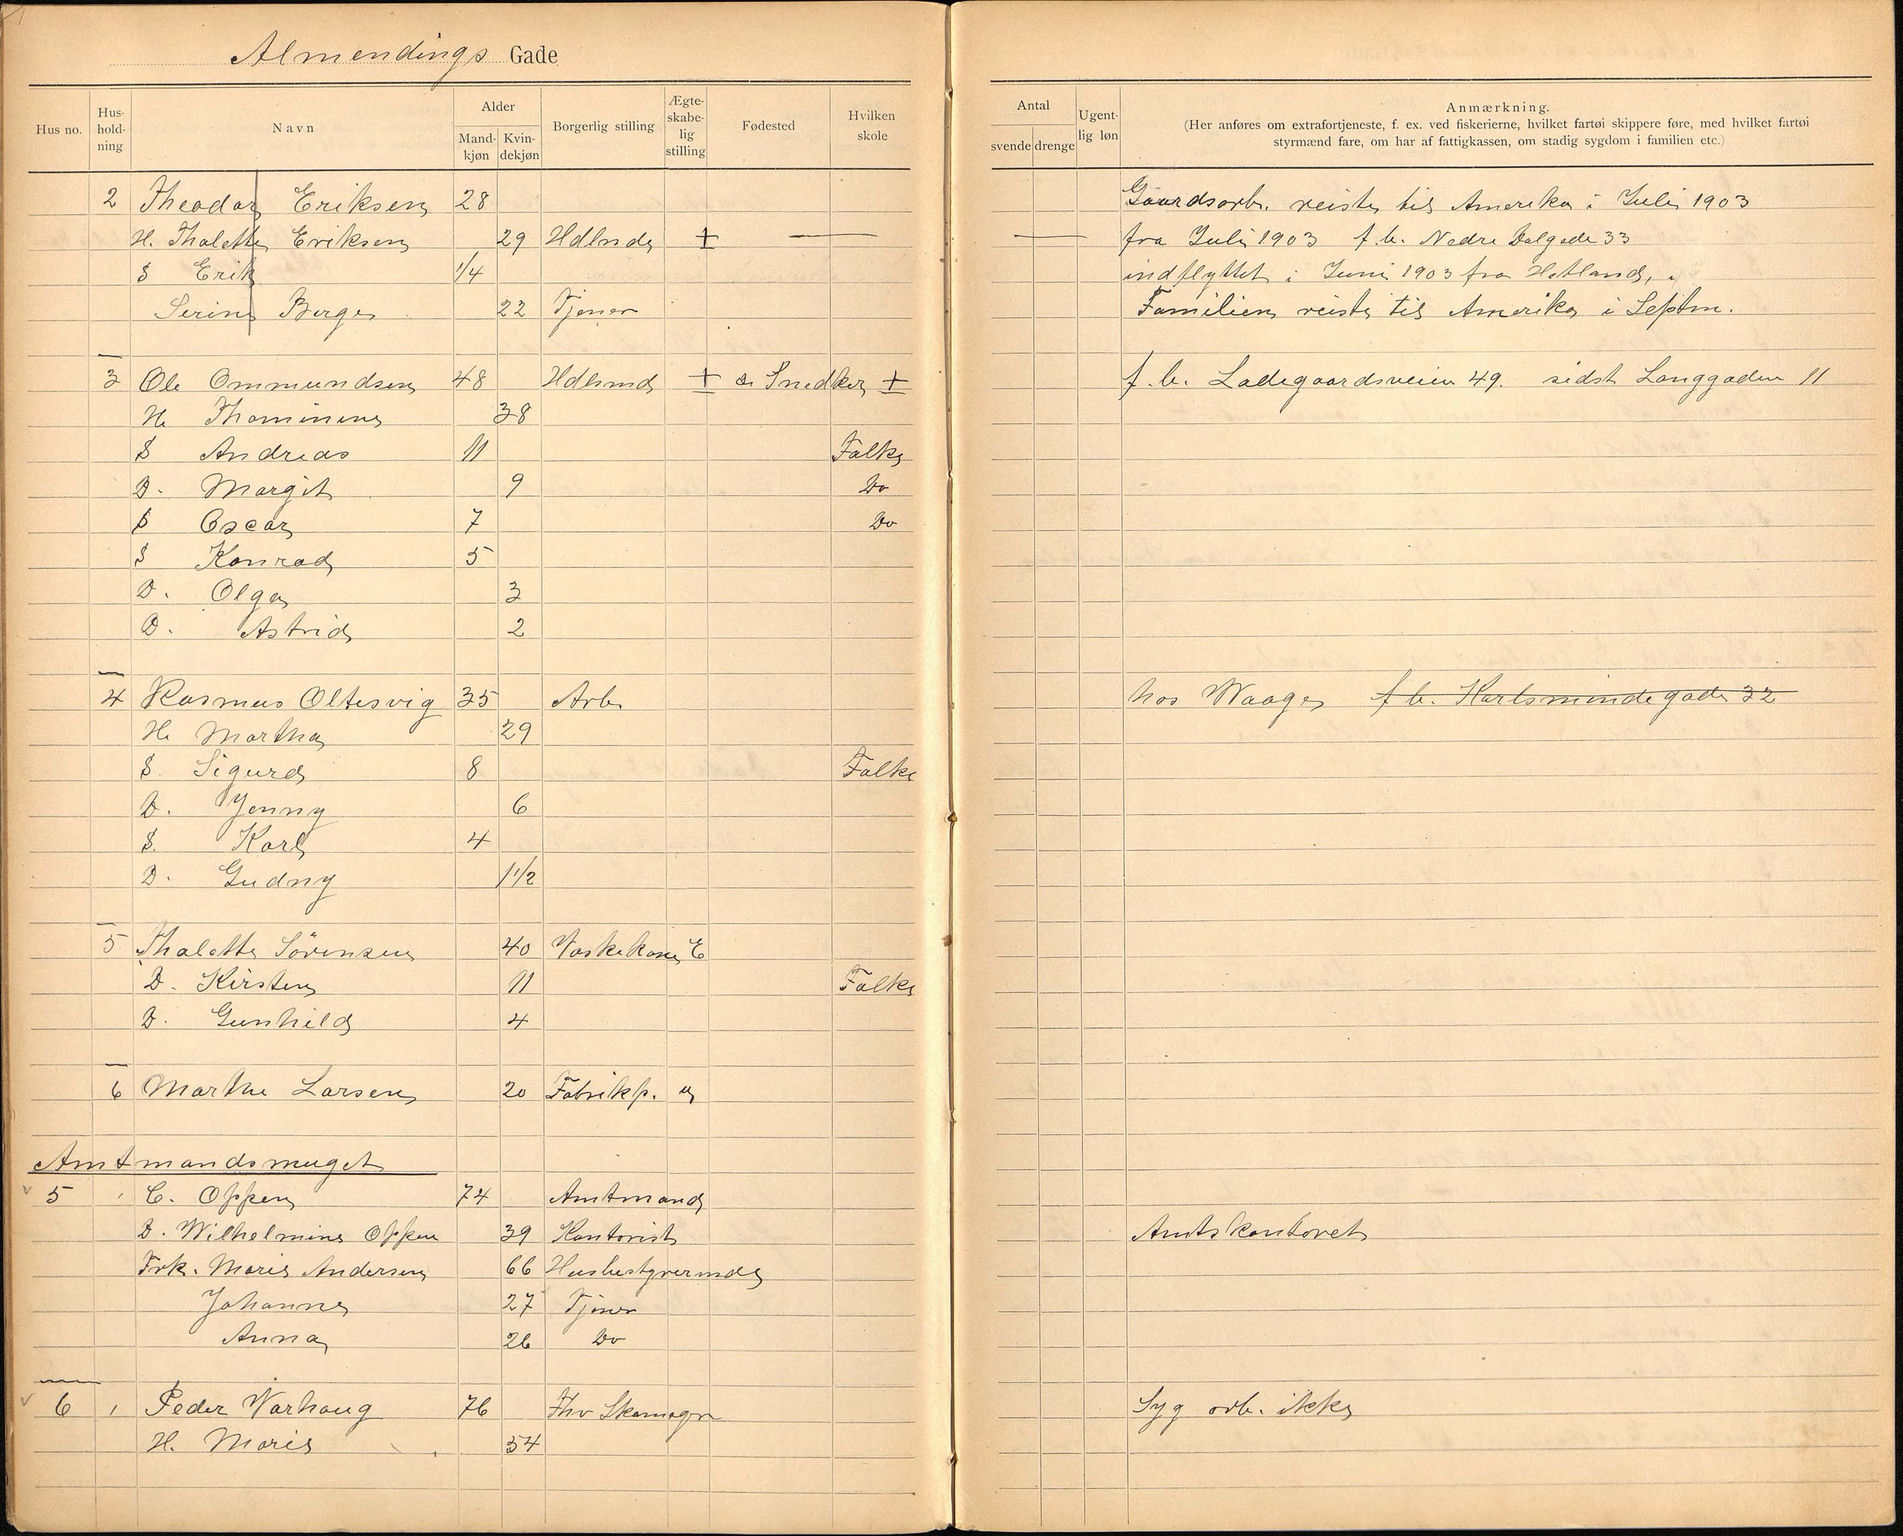 Almendings Gade
Hus no. Hus-hold-ning Navn Alder Mand-kjøn Kvin-dekjøn Borgerlig stilling Ægte-skabe-lig stilling Fødested Hvilken skole
Antal svende drenge Ugent-lig løn Anmærkning.
(Her anføres om extrafortjeneste, f. ex. ved fiskerierne, hvilket fartøi skippere føre, med hvilket fartøi
styrmænd fare, om har af fattigkassen, om stadig sygdom i familien etc.)
2 Theodor Eriksen 28 Gaardsarb. reiste til Amerika i Juli 1903
H. Thalette Eriksen 29 Hdlnde + — — fra Juli 1903 f.b. Nedre Dalgade 33
S Erik 1/4 indflyttet i Juni 1903 fra Hetland,
Serine Berge 22 Tjener Familien reiste til Amerika i Septm.
3 Ole Ommundsen 48 Hdlende + Snedker + f.b. Ladegaardsveien 49. sidst Langgaden 11
H. Thomine 38
S Andreas 11 Folke
D. Margit 9 Do
S Oscar 7 Do
S Konrad 5
D. Olga 3
D. Astrid 2
4 Rasmus Oltesvig 35 Arb. hos Waage f.b. Karlsmindegade 32
H. Martha 29
S. Sigurd 8 Folke
D. Jenny 6
S. Karl 4
D. Gudny 1 1/2
5 Thalette Sörensen 40 Vaskekone E
D. Kirsten 11 Folke
D. Gunhild 4
6 Marthe Larsen 20 Fabrikp. u
Amtmandsmuget
5 , C. Oppen 74 Amtmand
D. Wilhelmine Oppen 39 Kontorist Amtskontoret
Frk. Marie Andersen 66 Husbestyrerinde
Johanne 27 Tjener
Anna 26 Do
6 , Peder Varhaug 76 Fhv Skomager Syg arb. ikke
H. Marie 54